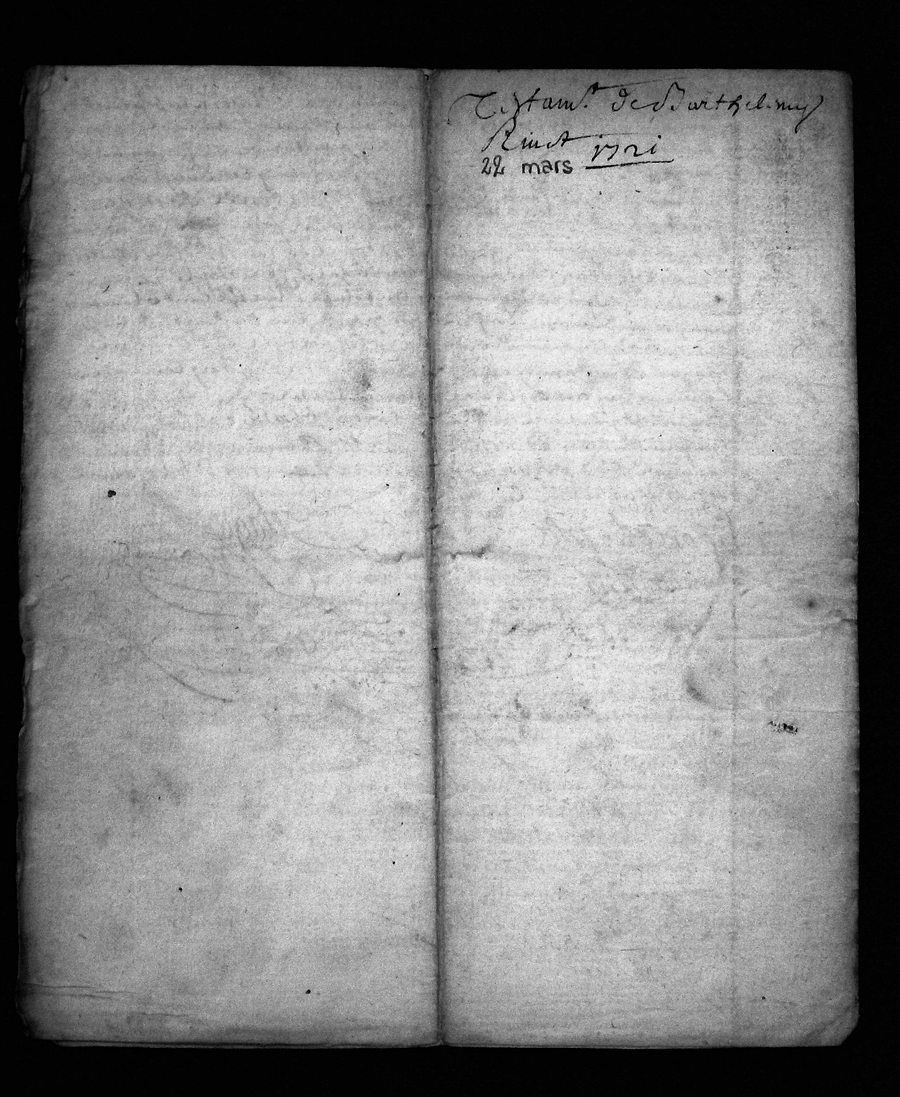 Testam.t de Barthelemy
Rinet 1721
22 mars